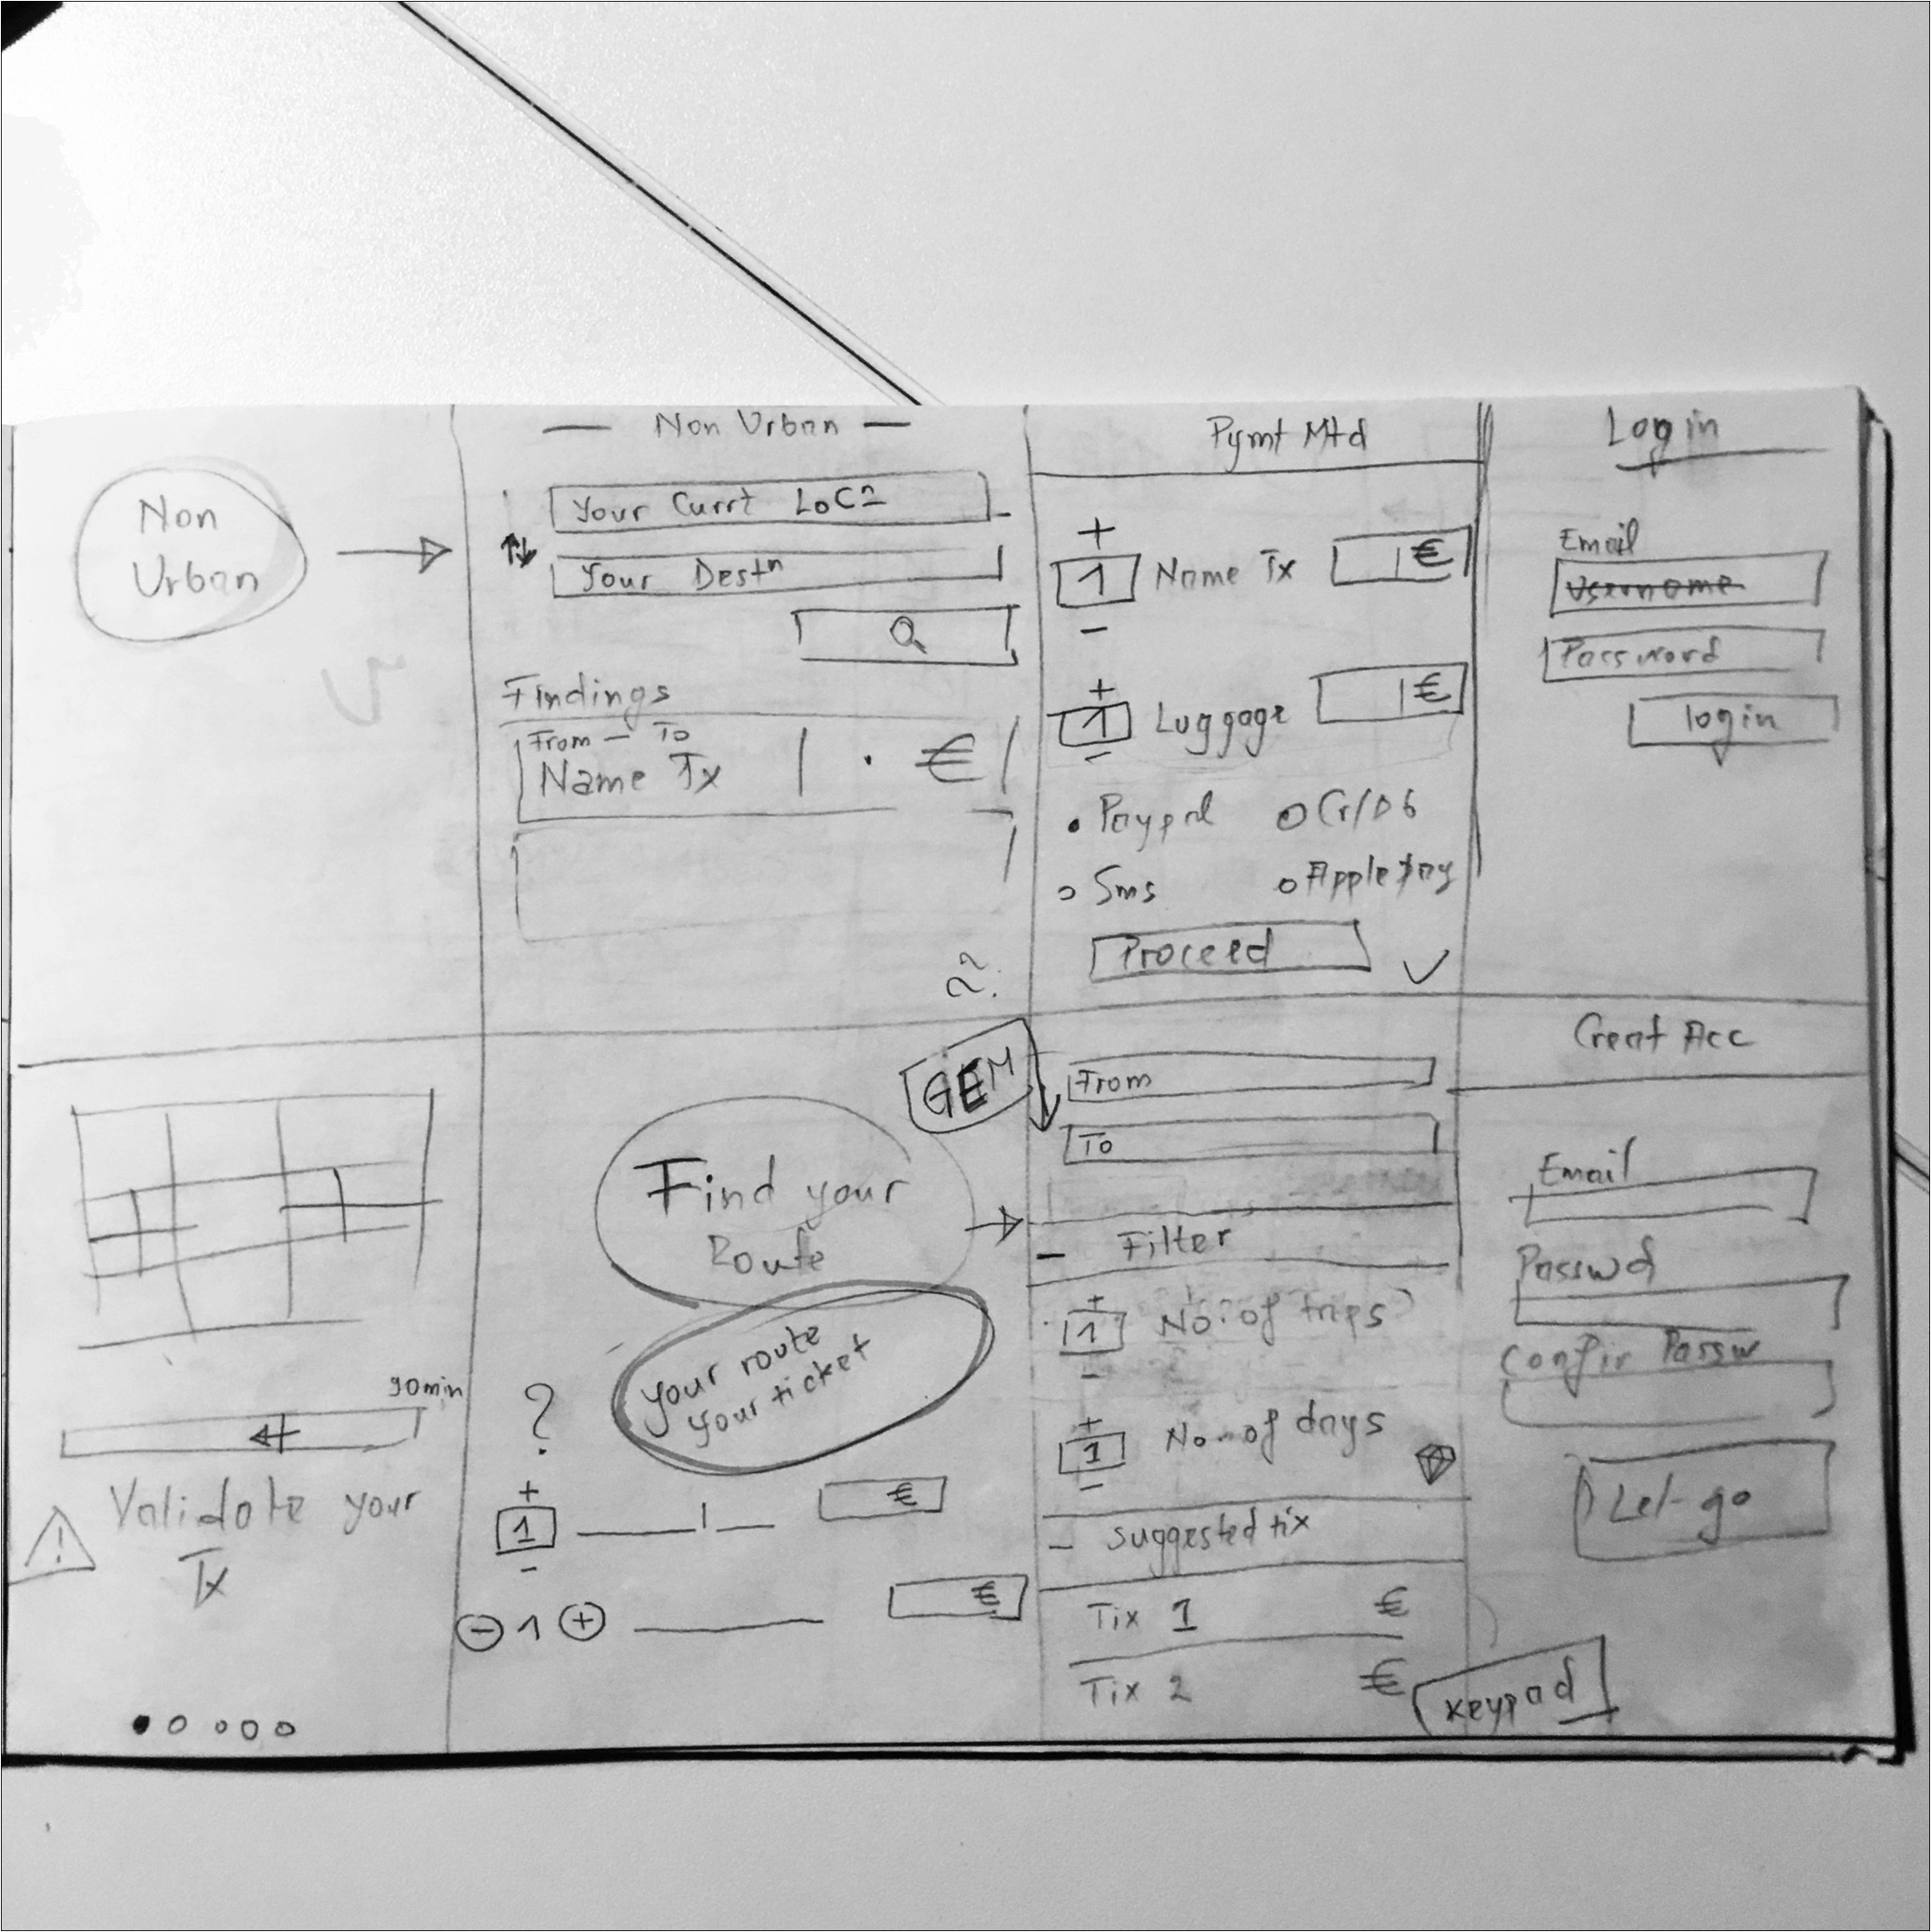 Non
Urban
— Non Urban —
Your Currt LOCn
Your Destn
Findings
From – To
Name Tx
€
??
Pymt Mtd
+
1 Name Tx €
-
+
1 Luggage €
-
Paypal Cr/Db
Sms Apple pay
Proceed
Log in
Email
Username
Password
login
90min
Validate your
Tx
!
GEM
Find your
Route
your route
your ticket
?
+
1 €
-
- 1 + €
From
To
- Filter
+
1 No. of trips
-
+
1 No. of days
-
- Suggested tix
Tix 1 €
Tix 2 €
Creat Acc
Email
Passwd
Confir Passw
Let-go
keypad